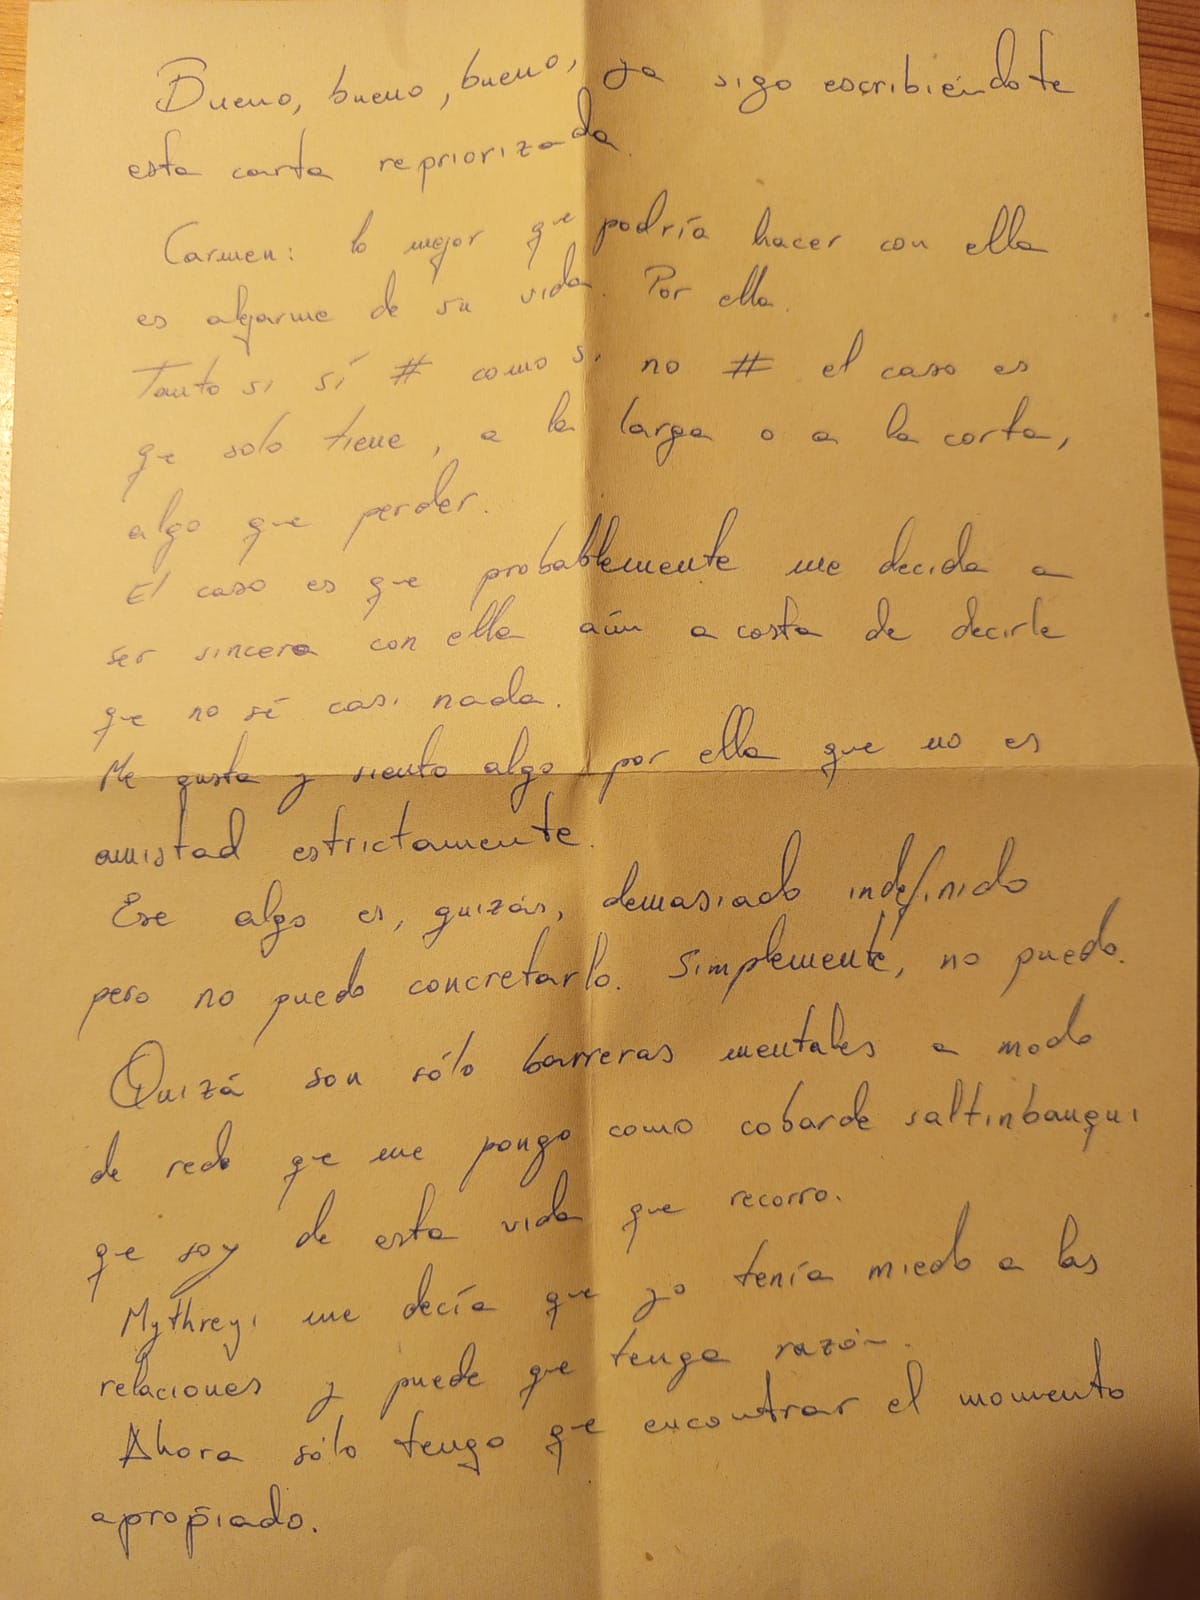 Bueno, bueno, bueno, ya sigo escribiéndote
esta carta repriorizada.
Carmen: lo mejor que podría hacer con ella
es alejarme de su vida. Por ella.
Tanto si sí # como si no # el caso es
que solo tiene, a la larga o a la corta,
algo que perder.
El caso es que probablemente me decida a
ser sincero con ella aún a costa de decirle
que no sé casi nada.
Me gusta y siento algo por ella que no es
amistad estrictamente.
Ese algo es, quizás, demasiado indefinido
pero no puedo concretarlo. Simplemente, no puedo.
Quizá son sólo barreras mentales a modo
de red que me pongo como cobarde saltinbanqui
que soy de esta vida que recorro.
Mythreyi me decía que yo tenía miedo a las
relaciones y puede que tenga razón.
Ahora sólo tengo que encontrar el momento
apropiado.